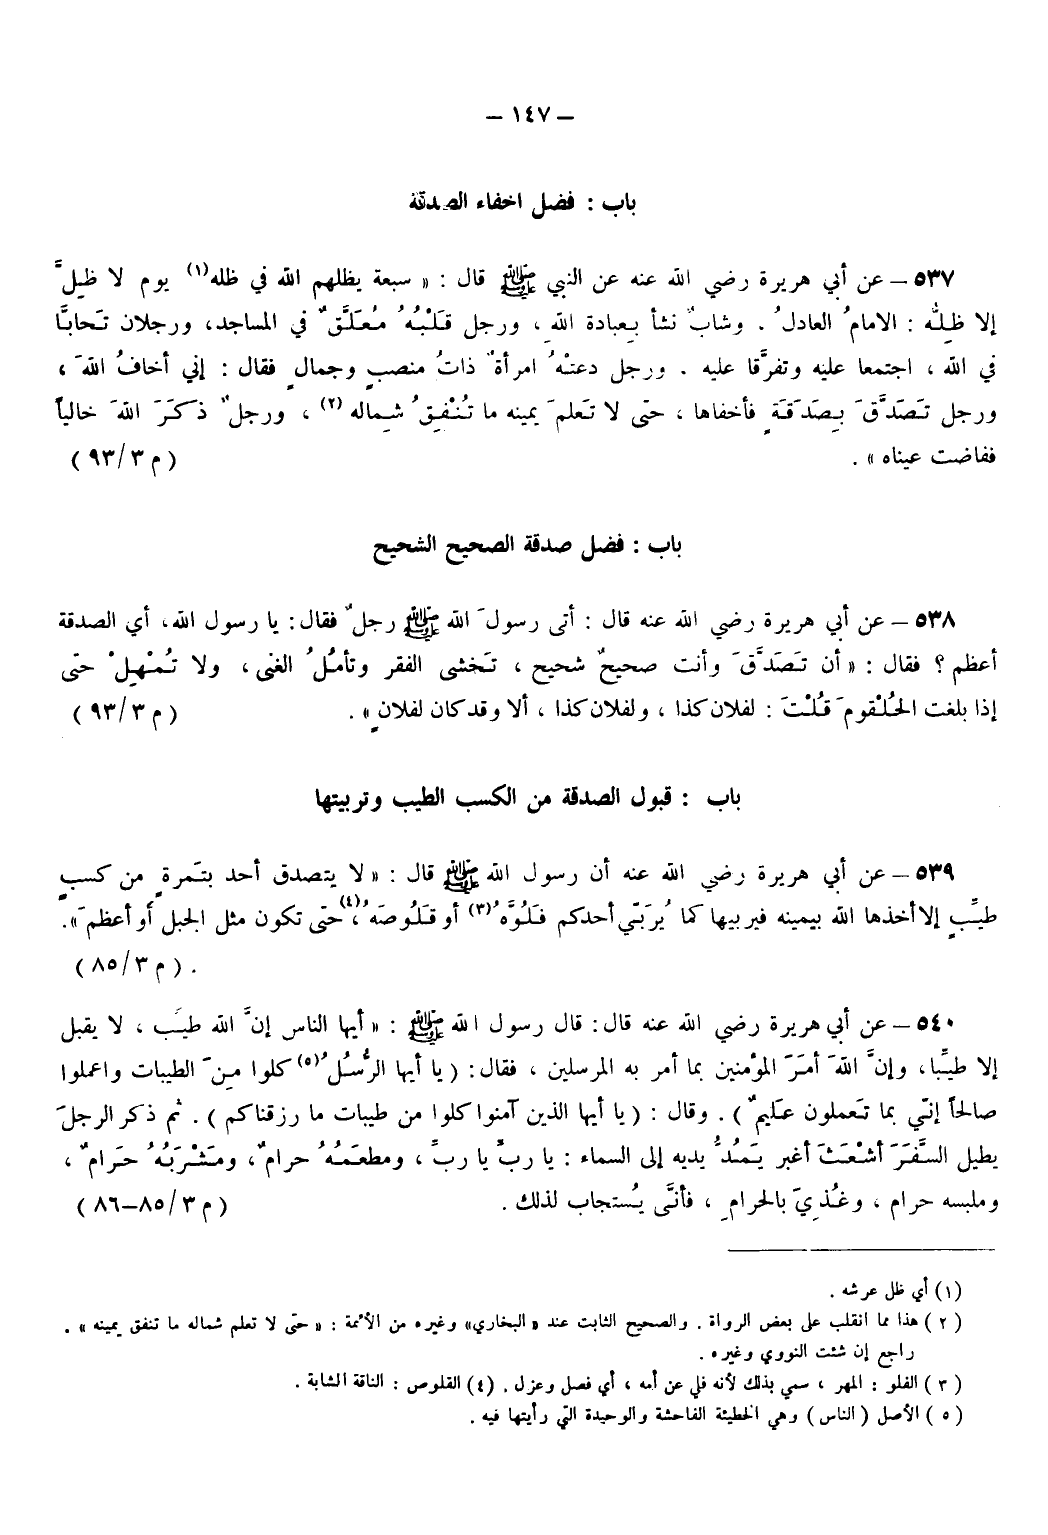 — ١٤٧ —
باب : فضل اخفاء الصدقة
٥٣٧ – عن أبي هريرة رضي الله عنه عن النبي ﷺ قال : « سبعة يظلهم الله في ظله(١) يوم لا ظِلَّ
إلا ظِلُّه : الامامُ العادلُ . وشابٌ نشأ بِعبادة اللهِ ، ورجل قَلْبُهُ مُعَلَّقٌ في المساجد، ورجلان تَحابَّا
في الله ، اجتمعا عليه وتفرَّقا عليه . ورجل دعتْهُ امرأةٌ ذاتُ منصبٍ وجمالٍ فقال : إني أخافُ اللهَ ،
ورجل تَصَدَّقَ بِصَدَقَةٍ فأخفاها ، حتى لا تَعلمَ يمينه ما تُنْفِقُ شِماله (٢) ، ورجلٌ ذكَرَ اللهَ خالياً
ففاضت عيناه » . ( م ٣/ ٩٣ )
باب : فضل صدقة الصحيح الشحيح
٥٣٨ – عن أبي هريرة رضي الله عنه قال : أتى رسولَ الله ﷺ رجلٌ فقال : يا رسول الله، أي الصدقة
أعظم ؟ فقال : « أن تَصَدَّقَ وأنت صحيحٌ شحيح ، تَخشى الفقر وتأمُلُ الغنى ، ولا تُمْهِلْ حتى
إذا بلغت الحُلْقومَ قُلْتَ : لفلان كذا ، ولفلان كذا ، ألا وقد كان لفلانٍ » . ( م ٣/ ٩٣ )
باب : قبول الصدقة من الكسب الطيب وتربيتها
٥٣٩ – عن أبي هريرة رضي الله عنه أن رسول الله ﷺ قال : « لا يتصدق أحد بتَمرةٍ من كسبٍ
طيِّبٍ إلا أخذها الله بيمينه فيربيها كما يُرَبّي أحدكم فَلُوَّهُ(٣) أو قَلُوصَهُ،(٤)حتى تكون مثل الجبل أو أعظمَ ».
. ( م ٣/ ٨٥ )
٥٤٠ – عن أبي هريرة رضي الله عنه قال : قال رسول الله ﷺ : « أيها الناس إنَّ الله طيِّب ، لا يقبل
إلا طيِّبا، وإنَّ اللهَ أمَرَ المؤمنين بما أمر به المرسلين ، فقال : ( يا أيها الرُّسُلُ(٥) كلوا مِنَ الطيبات واعملوا
صالحاً إنّي بما تَعملون عَليمٌ ) . وقال : ( يا أيها الذين آمنوا كلوا من طيبات ما رزقناكم ) . ثم ذكر الرجلَ
يطيل السَّفَرَ أشْعَثَ أغبر يَمُدُّ يديه إلى السماء : يا ربّ يا ربِّ ، ومطعَمُهُ حرامٌ، ومَشْرَبُهُ حَرامٌ ،
وملبسه حرام ، وغُذِيَ بالحرامِ ، فأنَّى يُستجاب لذلك . ( م ٣/ ٨٥–٨٦ )
(١) أي ظل عرشه .
( ٢ ) هذا مما انقلب على بعض الرواة . والصحيح الثابت عند « البخاري» وغيره من الأئمة : « حتى لا تعلم شماله ما تنفق يمينه » .
راجع إن شئت النووي وغيره .
( ٣ ) الفلو : المهر ، سمي بذلك لأنه فلي عن أمه ، أي فصل وعزل . (٤) القلوص : الناقة الشابة .
( ٥ ) الأصل ( الناس ) وهي الخطيئة الفاحشة والوحيدة التي رأيتها فيه .